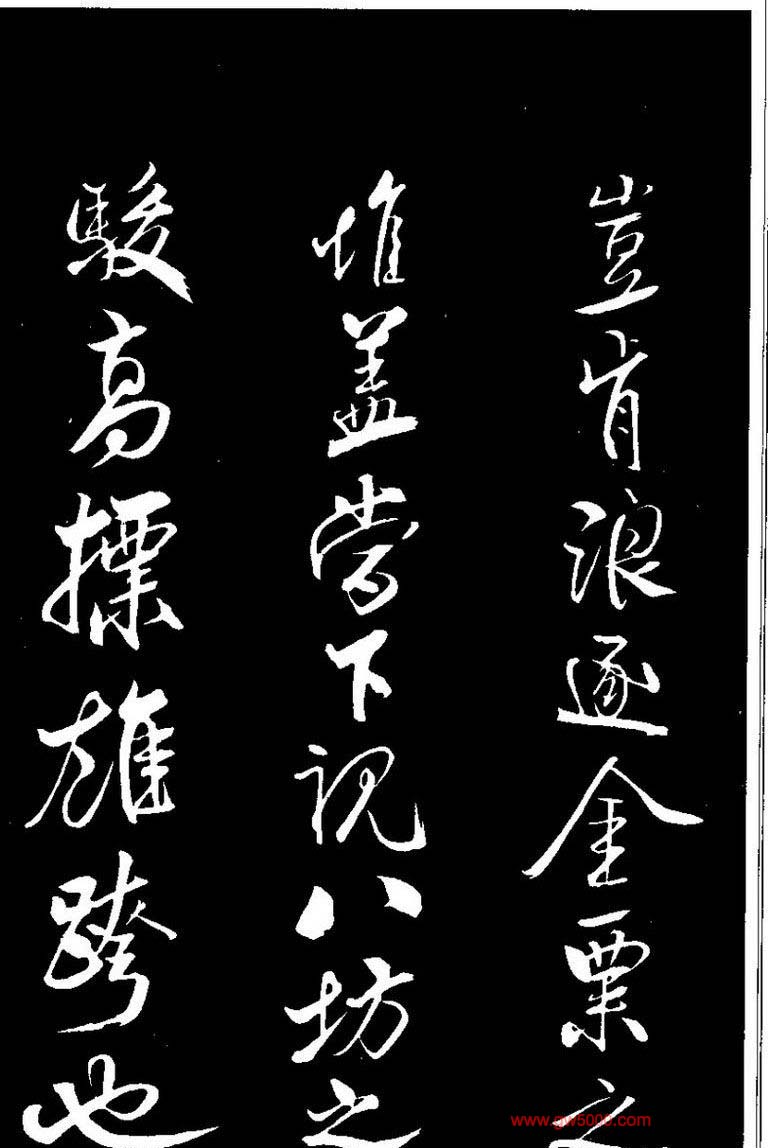 豈肯浪逐金粟之
堆盖当下视八坊之
駿高摽雄跨也
www.gw5000.com